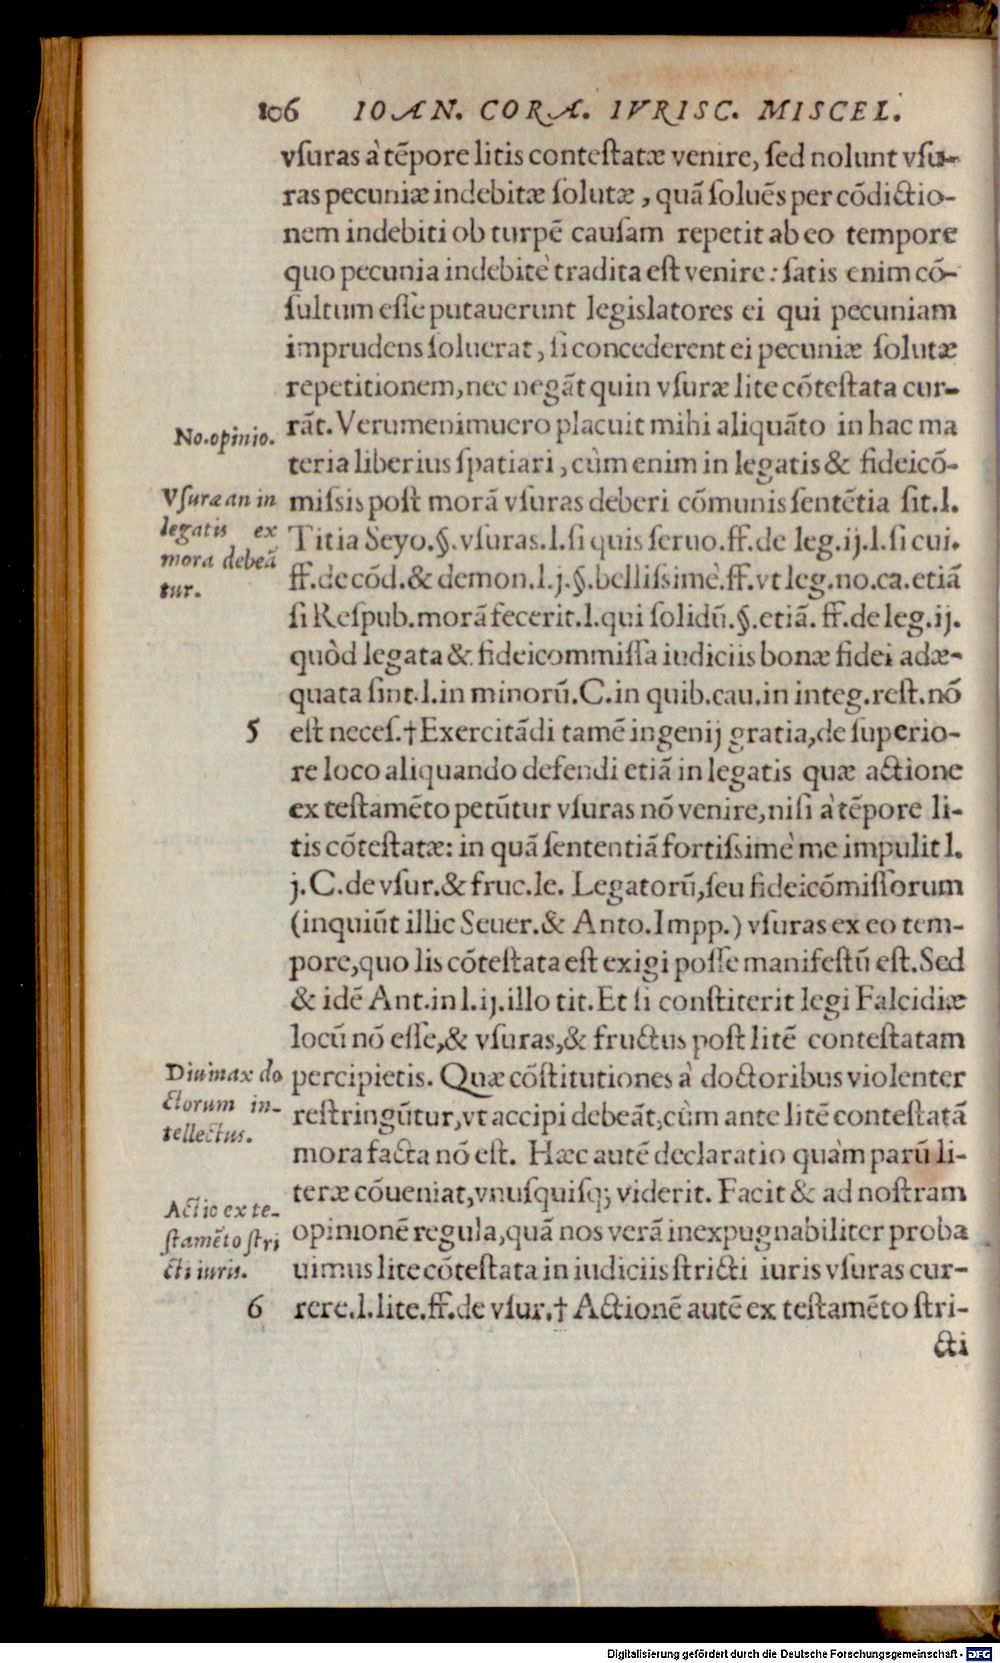 106 IOAN. CORA. IVRISC. MISCEL.
vſuras à tẽpore litis conteſtatæ venire, ſed nolunt vſu-
ras pecuniæ indebitæ ſolutæ, quã ſoluẽs per cõdictio-
nem indebiti ob turpẽ cauſam repetit ab eo tempore
quo pecunia indebitè tradita eſt venire: ſatis enim cõ-
ſultum eſſe putauerunt legislatores ei qui pecuniam
imprudens ſoluerat, ſi concederent ei pecuniæ ſolutæ
repetitionem, nec negãt quin vſuræ lite cõteſtata cur-
rãt. Verumenimuero placuit mihi aliquãto in hac ma
No.opinio.
teria liberius ſpatiari, cùm enim in legatis & fideicõ-
Vſuræ an in
legatis ex
mora debeã
tur.
miſsis poſt morã vſuras deberi cõmunis ſentẽtia ſit. l.
Titia Seyo.§.vſuras.l.ſi quis ſeruo.ff.de leg.ij.l.ſi cui.
ff.de cõd.& demon.l.j.§.belliſsimè.ff.vt leg.no.ca.etiã
ſi Reſpub.morã fecerit.l.qui ſolidũ.§.etiã. ff.de leg.ij.
quòd legata & fideicommiſſa iudiciis bonæ fidei adæ-
quata ſint.l.in minorũ.C.in quib.cau.in integ.reſt.nõ
5 eſt neceſ.†Exercitãdi tamẽ ingenij gratia, de ſuperio-
re loco aliquando defendi etiã in legatis quæ actione
ex teſtamẽto petũtur vſuras nõ venire, niſi à tẽpore li-
tis cõteſtatæ: in quã ſententiã fortiſsimè me impulit l.
j.C.de vſur.& fruc.le. Legatorũ, ſeu fideicõmiſſorum
(inquiũt illic Seuer.& Anto.Impp.) vſuras ex eo tem-
pore, quo lis cõteſtata eſt exigi poſſe manifeſtũ eſt. Sed
& idẽ Ant.in l.ij.illo tit. Et ſi conſtiterit legi Falcidiæ
locũ nõ eſſe, & vſuras, & fructus poſt litẽ conteſtatam
Diui max do
ctorum in-
tellectus.
percipietis. Quæ cõſtitutiones à doctoribus violenter
reſtringũtur, vt accipi debeãt, cùm ante litẽ conteſtatã
mora facta nõ eſt. Hæc autẽ declaratio quàm parũ li-
teræ cõueniat, vnuſquiſq; viderit. Facit & ad noſtram
Actio ex te-
ſtamẽto ſtri
cti iuris.
opinionẽ regula, quã nos verã inexpugnabiliter proba
uimus lite cõteſtata in iudiciis ſtricti iuris vſuras cur-
6 rere.l.lite.ff.de vſur.† Actionẽ autẽ ex teſtamẽto ſtri-
cti
Digitalisierung gefördert durch die Deutsche Forschungsgemeinschaft - DFG